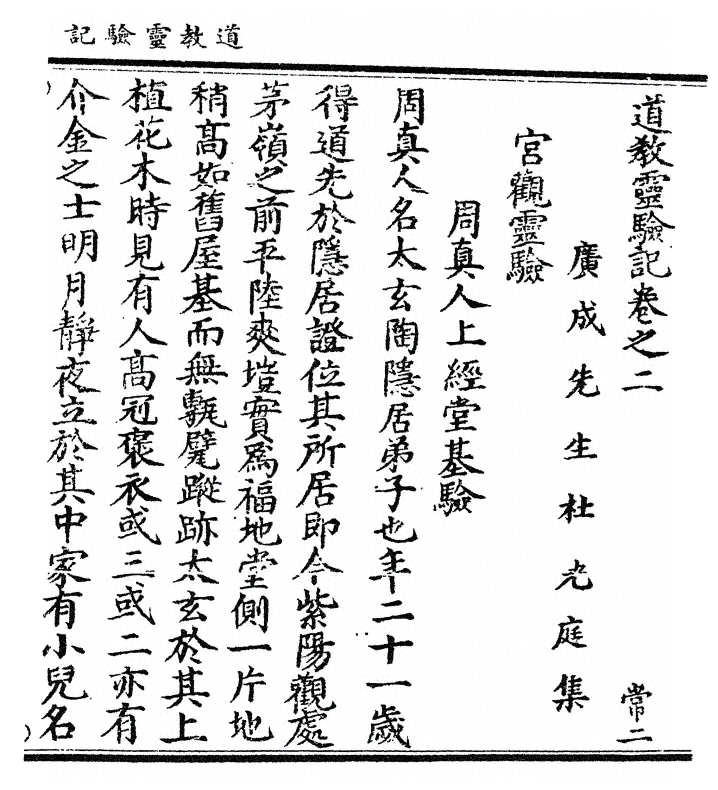 道教靈驗記
道教靈驗記卷之二 常二
廣成先生杜光庭集
宮觀靈驗
周真人上經堂基驗
周真人名太玄陶隱居弟子也年二十一歲
得道先於隱居證位其所居即今紫陽觀處
茅嶺之前平陸爽塏實爲福地堂側一片地
稍髙如舊屋基而無甎甓蹤跡太玄於其上
植花木時見有人髙冠褒衣或三或二亦有
介金之士明月靜夜立於其中家有小兒名